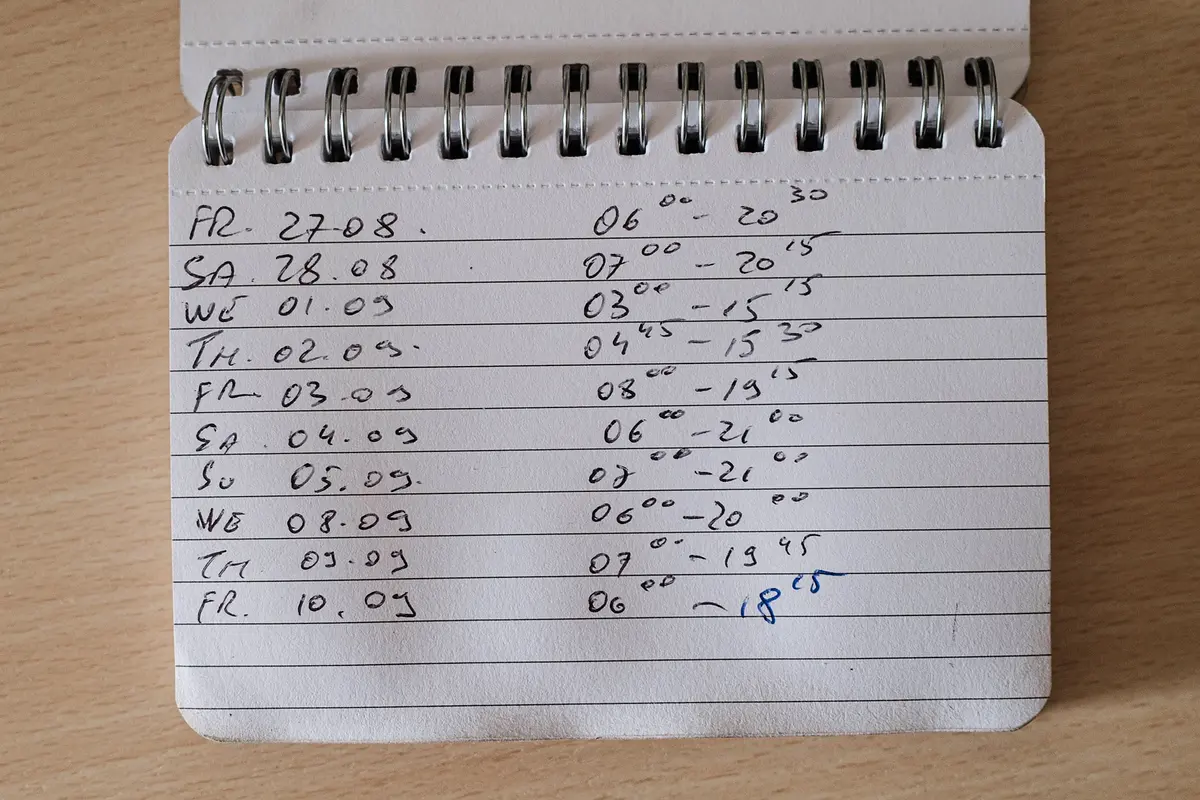 FR. 27.08. 06 00 - 20 30
SA. 28.08 07 00 - 20 15
WE 01.09 03 00 - 15 15
TH. 02.09. 04 45 - 15 30
FR. 03.09 08 00 - 19 15
SA. 04.09 06 00 - 21 00
SU 05.09. 07 00 - 21 00
WE 08.09 06 00 - 20 00
TH 09.09 07 00 - 19 45
FR. 10.09 06 00 - 18 15